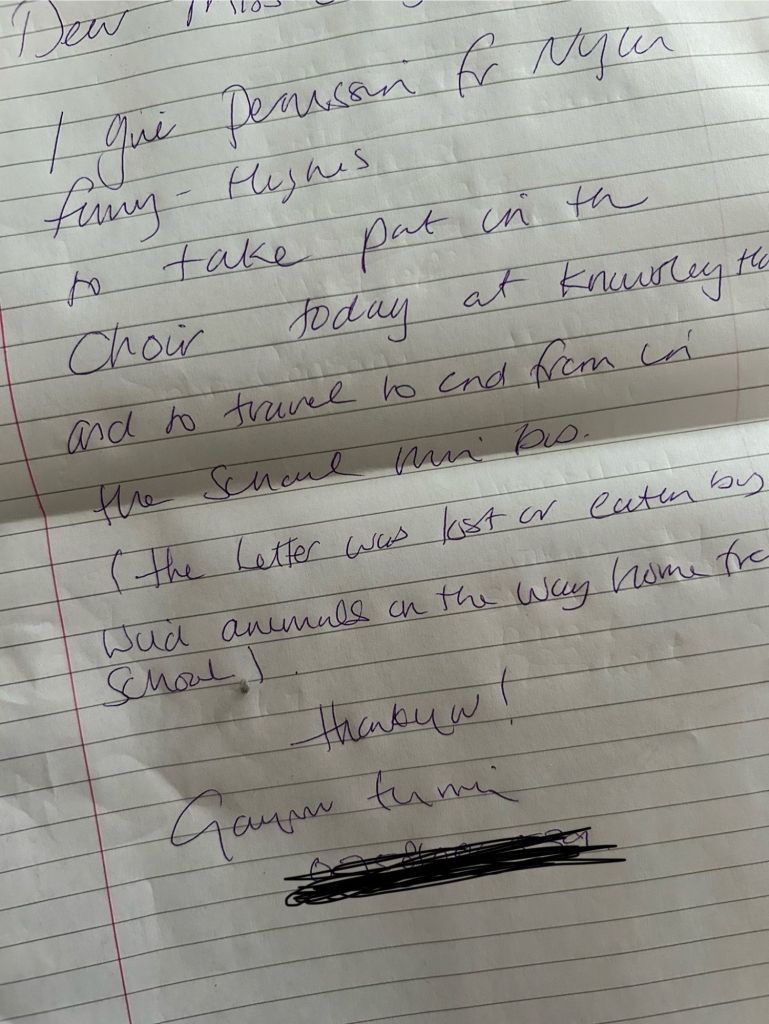 Dear Miss
I give permission for Nyla
- Hughes
to take part in the
Choir today at Knowsley Ha
and to travel to and from in
the School mini bus.
(the letter was lost or eaten by
wild animals on the way home fro
School).
thankyou!